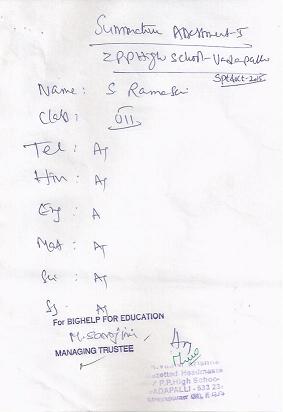 Summative Assessment-I
Z P P High School - Vadapalli
Sept/Oct-2015
Name : S Ramesh
Class : VIII
Tel : A+
Hin : A+
Eng : A
Mat : A+
Sci : A+
SS : A+
For BIGHELP FOR EDUCATION
MANAGING TRUSTEE
Gazetted Headmaster
Z.P.P.High School
VADAPALLI - 533 23